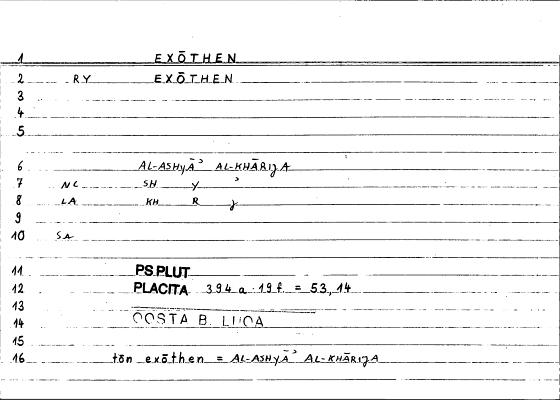 1 EXŌTHEN
2 RY EXŌTHEN
3
4
5
6 AL-ASHYĀʾ AL-KHĀRIJA
7 NC SH Y ʾ
8 LA KH R J
9
10 SA
11 PS.PLUT
12 PLACITA 394 a 19f = 53,14
13
14 COSTA B. LUCA
15
16 tōn exōthen = AL-ASHYĀʾ AL-KHĀRIJA